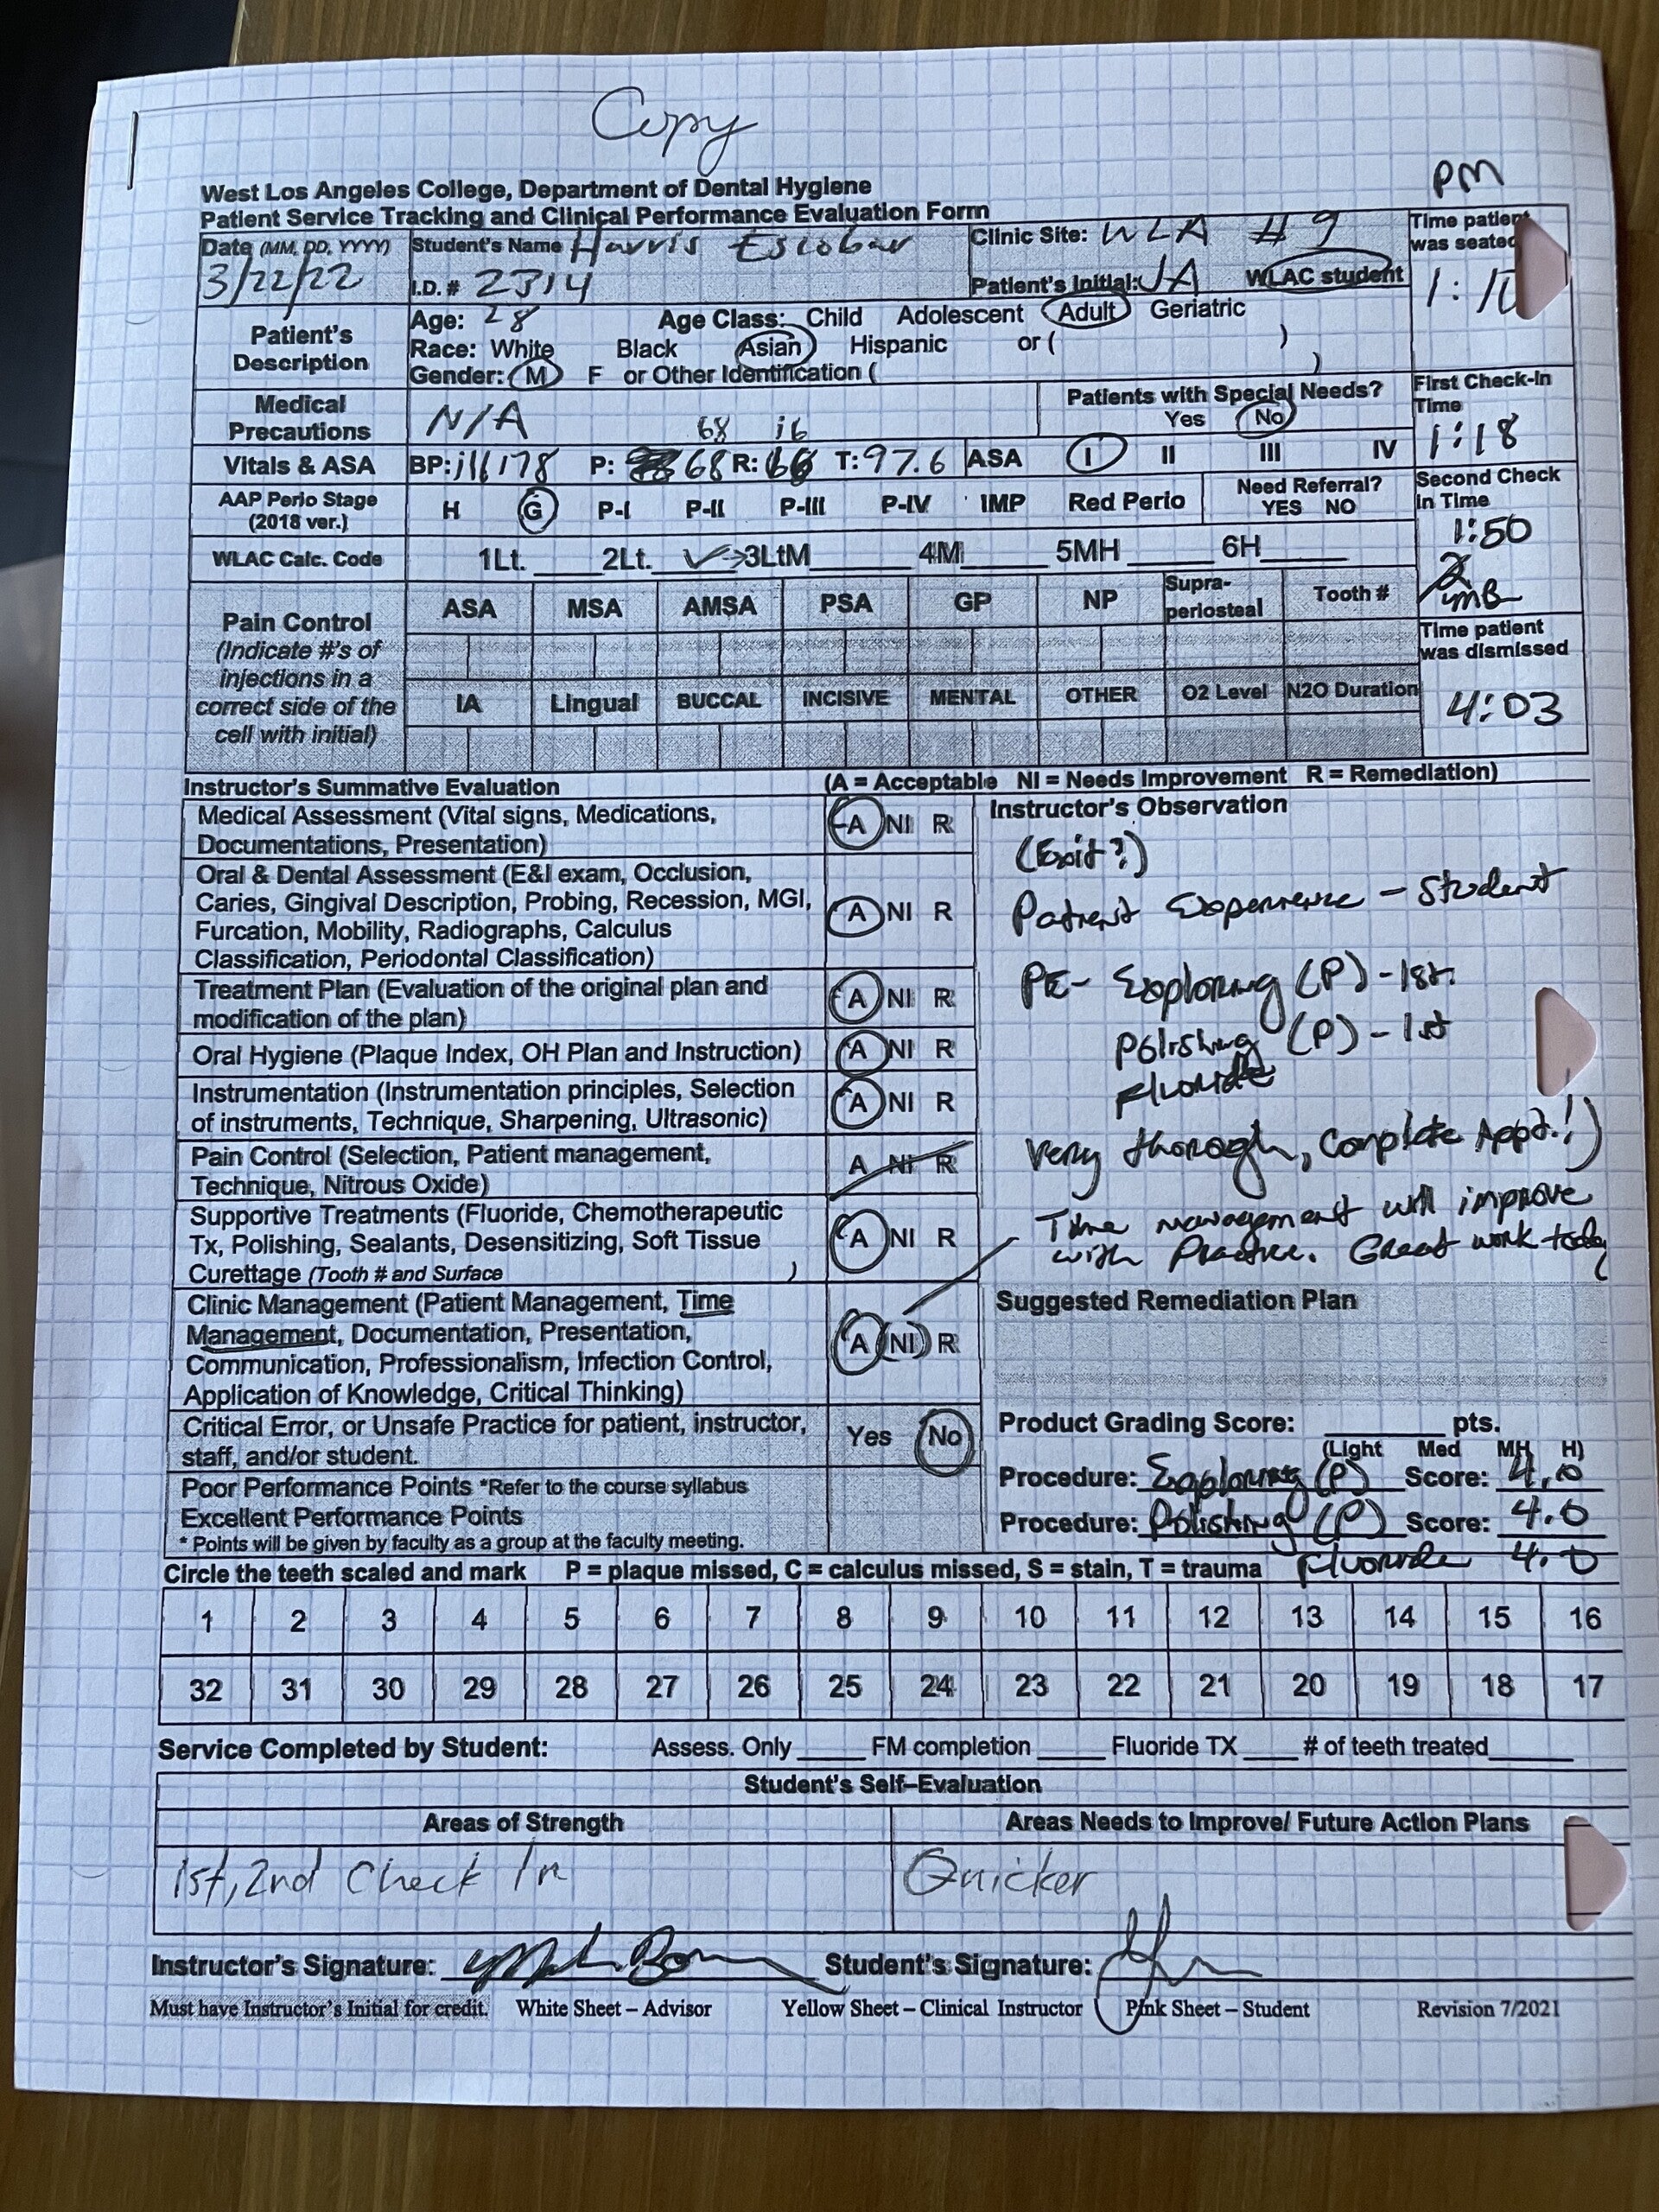 Copy
PM
West Los Angeles College, Department of Dental Hygiene
Patient Service Tracking and Clinical Performance Evaluation Form
Date (MM, DD, YYYY) Student's Name Harris Escobar Clinic Site: WLA #9 Time patient was seated
3/22/22 I.D. # 2314 Patient's Initial: JA WLAC student 1:10
Patient's Description Age: 28 Age Class: Child Adolescent Adult Geriatric
Race: White Black Asian Hispanic or ( )
Gender: M F or Other Identification ( )
Medical Precautions N/A Patients with Special Needs? Yes No First Check-In Time 1:18
68 16
Vitals & ASA BP: 116/78 P: 68 R: T: 97.6 ASA I II III IV
AAP Perio Stage (2018 ver.) H G P-I P-II P-III P-IV IMP Red Perio Need Referral? YES NO Second Check In Time 1:50
WLAC Calc. Code 1Lt. 2Lt. 3LtM 4M 5MH 6H
Pain Control (Indicate #'s of injections in a correct side of the cell with initial)
ASA MSA AMSA PSA GP NP Supra-periosteal Tooth #
Time patient was dismissed 4:03
IA Lingual BUCCAL INCISIVE MENTAL OTHER O2 Level N2O Duration
Instructor's Summative Evaluation (A = Acceptable NI = Needs Improvement R = Remediation)
Medical Assessment (Vital signs, Medications, Documentations, Presentation) A NI R
Oral & Dental Assessment (E&I exam, Occlusion, Caries, Gingival Description, Probing, Recession, MGI, Furcation, Mobility, Radiographs, Calculus Classification, Periodontal Classification) A NI R
Treatment Plan (Evaluation of the original plan and modification of the plan) A NI R
Oral Hygiene (Plaque Index, OH Plan and Instruction) A NI R
Instrumentation (Instrumentation principles, Selection of instruments, Technique, Sharpening, Ultrasonic) A NI R
Pain Control (Selection, Patient management, Technique, Nitrous Oxide) A NI R
Supportive Treatments (Fluoride, Chemotherapeutic Tx, Polishing, Sealants, Desensitizing, Soft Tissue Curettage (Tooth # and Surface ) A NI R
Clinic Management (Patient Management, Time Management, Documentation, Presentation, Communication, Professionalism, Infection Control, Application of Knowledge, Critical Thinking) A NI R
Critical Error, or Unsafe Practice for patient, instructor, staff, and/or student. Yes No
Poor Performance Points *Refer to the course syllabus
Excellent Performance Points
* Points will be given by faculty as a group at the faculty meeting.
Instructor's Observation
(Exit?)
Patient Experience - Student
PE- Exploring (P) - 1st.
Polishing (P) - 1st
Fluoride
Very thorough, Complete Appt.!)
Time management will improve
with Practice. Great work today
Suggested Remediation Plan
Product Grading Score: pts.
(Light Med MH H)
Procedure: Exploring (P) Score: 4.0
Procedure: Polishing (P) Score: 4.0
Fluoride 4.0
Circle the teeth scaled and mark P = plaque missed, C = calculus missed, S = stain, T = trauma
1 2 3 4 5 6 7 8 9 10 11 12 13 14 15 16
32 31 30 29 28 27 26 25 24 23 22 21 20 19 18 17
Service Completed by Student: Assess. Only FM completion Fluoride TX # of teeth treated
Student's Self-Evaluation
Areas of Strength Areas Needs to Improve/ Future Action Plans
1st, 2nd Check In Quicker
Instructor's Signature: Student's Signature:
Must have Instructor's Initial for credit. White Sheet – Advisor Yellow Sheet – Clinical Instructor Pink Sheet – Student Revision 7/2021